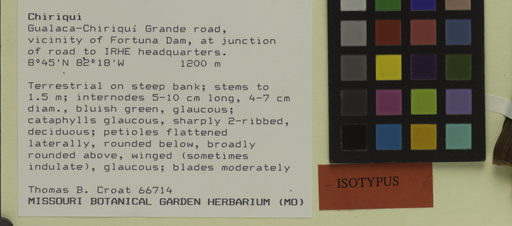 Chiriqui
Gualaca-Chiriquí Grande road,
vicinity of Fortuna Dam, at junction
of road to IRHE headquarters.
8°45'N 82°18'W 1200 m
Terrestrial on steep bank; stems to
1.5 m; internodes 5-10 cm long, 4-7 cm
diam., bluish green, glaucous;
cataphylls glaucous, sharply 2-ribbed,
deciduous; petioles flattened
laterally, rounded below, broadly
rounded above, winged (sometimes
indulate), glaucous; blades moderately
Thomas B. Croat 66714
MISSOURI BOTANICAL GARDEN HERBARIUM (MO)
ISOTYPUS